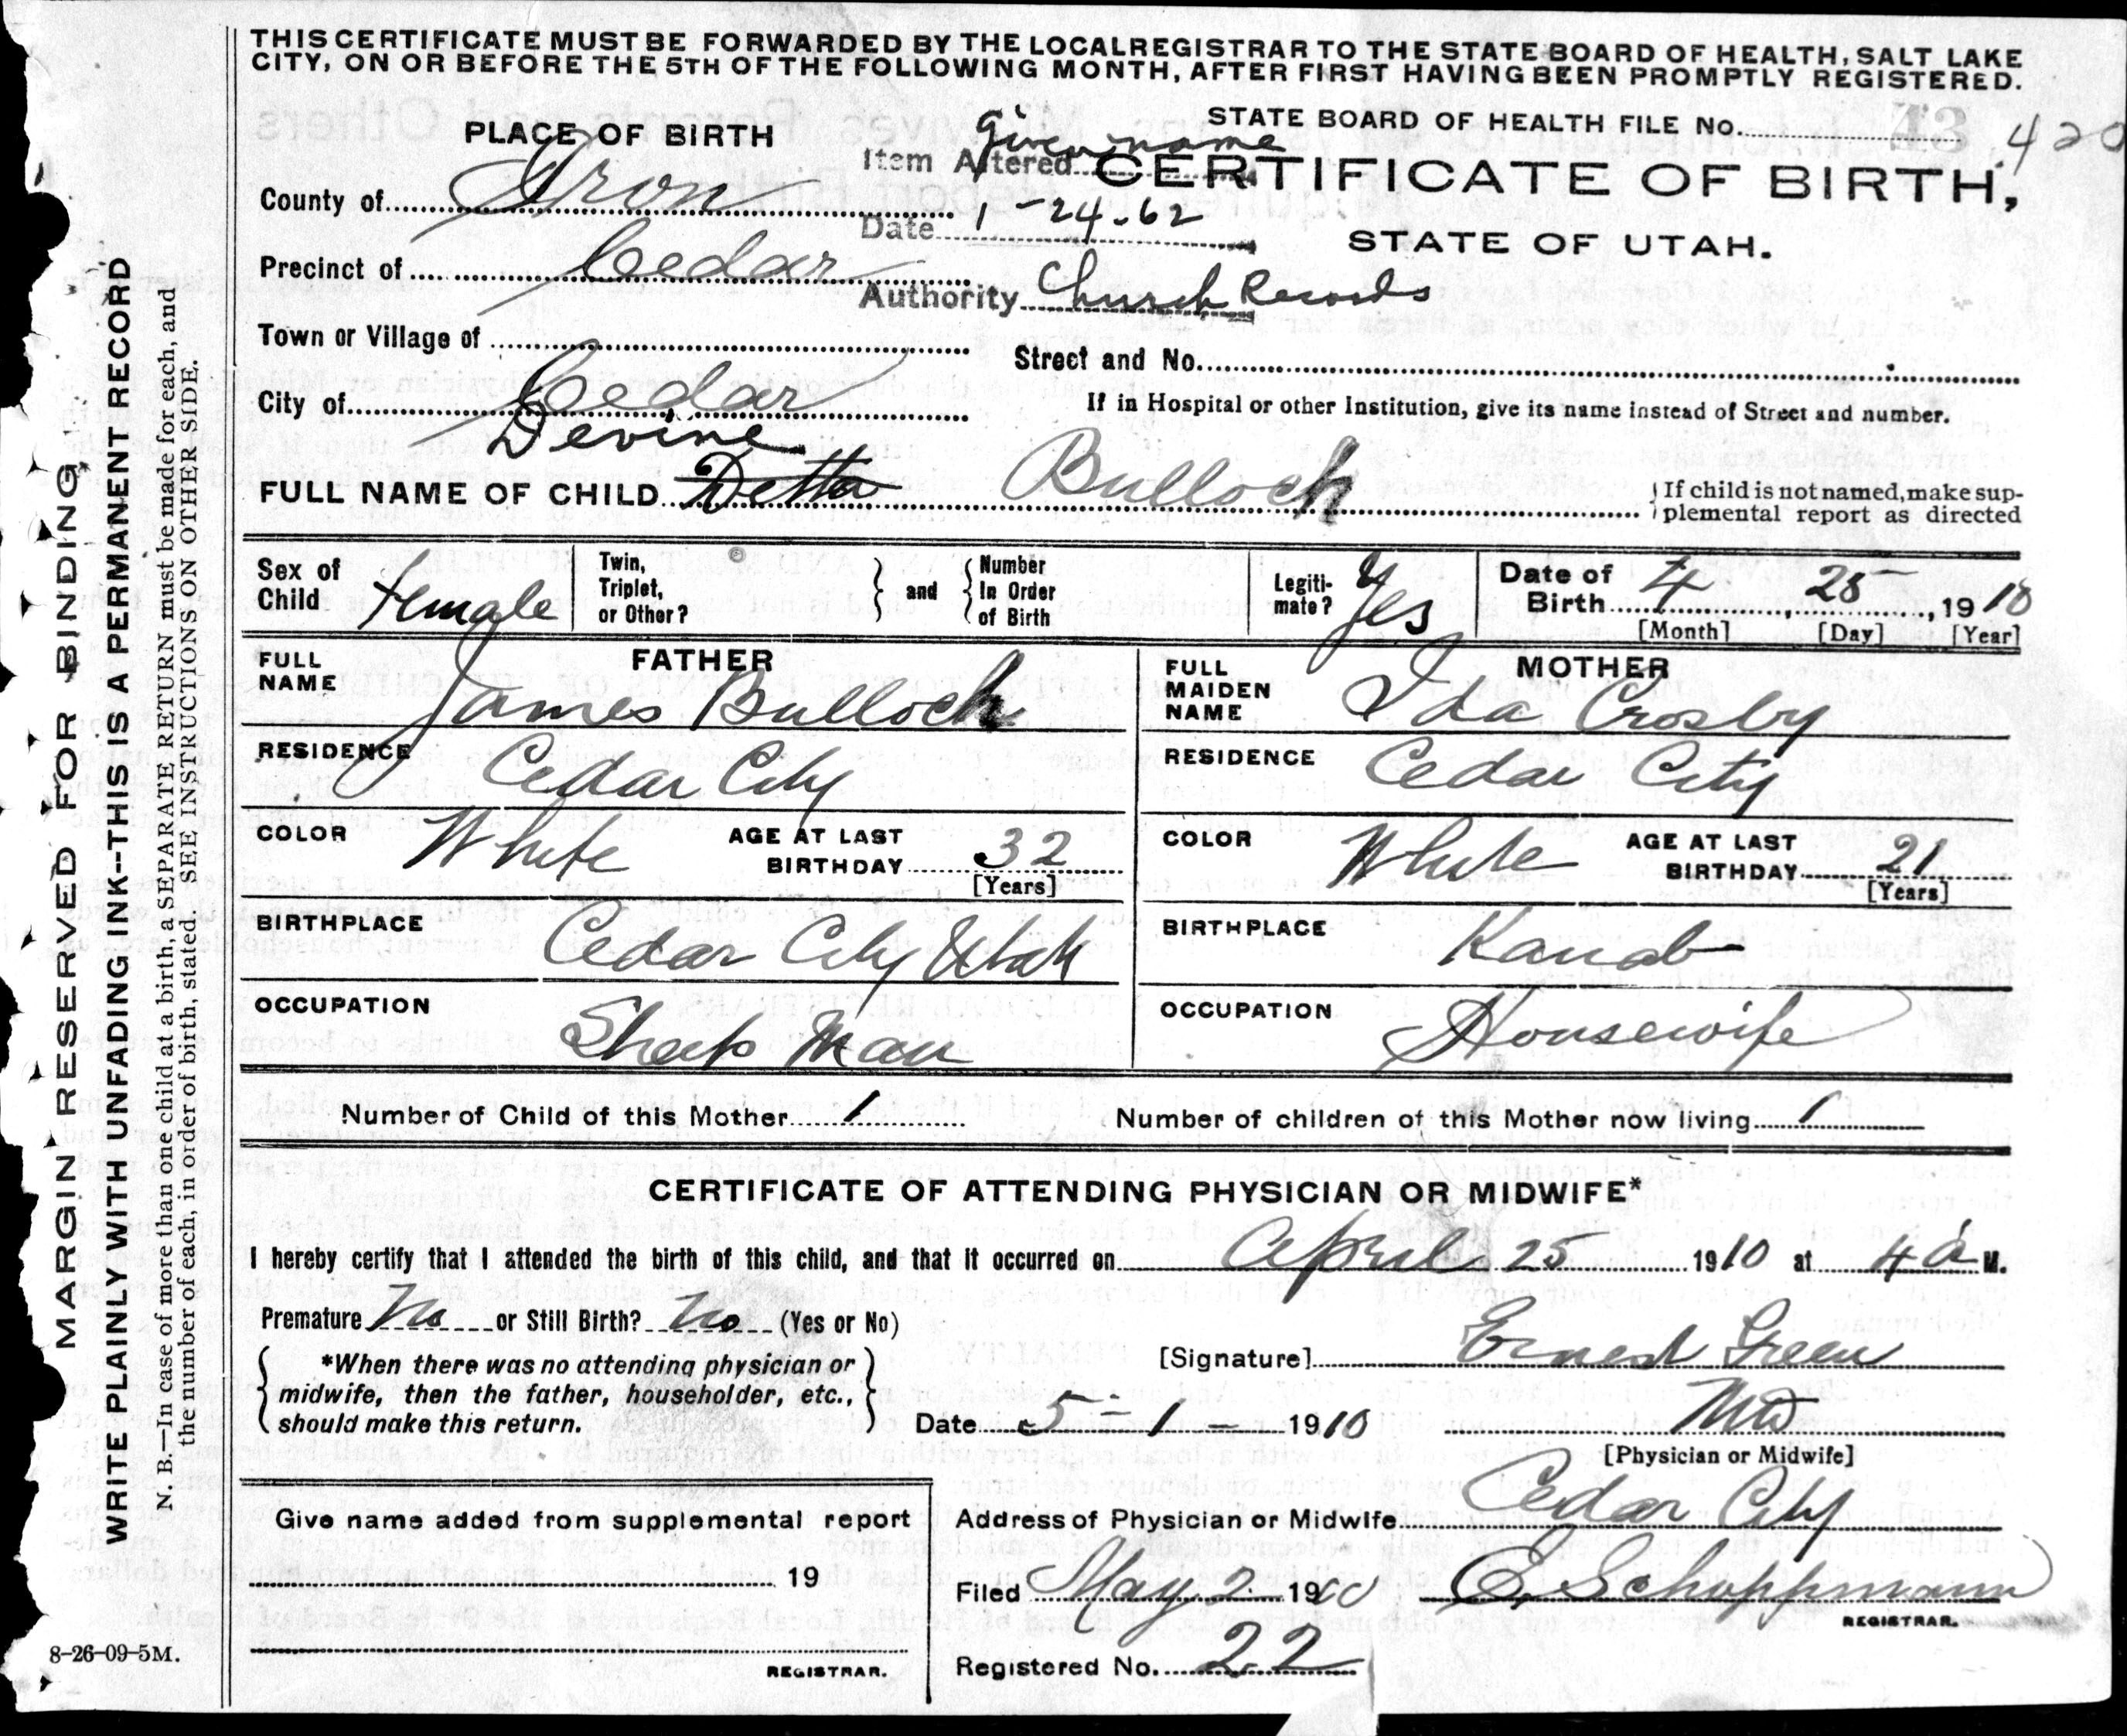 THIS CERTIFICATE MUST BE FORWARDED BY THE LOCAL REGISTRAR TO THE STATE BOARD OF HEALTH, SALT LAKE
CITY, ON OR BEFORE THE 5TH OF THE FOLLOWING MONTH, AFTER FIRST HAVING BEEN PROMPTLY REGISTERED.
STATE BOARD OF HEALTH FILE No. 43 420
PLACE OF BIRTH
Item Altered Given name
CERTIFICATE OF BIRTH,
County of Iron
Date 1-24-62
STATE OF UTAH.
Precinct of Cedar
Authority Church Records
Town or Village of
Street and No.
City of Cedar
If in Hospital or other Institution, give its name instead of Street and number.
Devine
FULL NAME OF CHILD Detta Bulloch
If child is not named, make sup-
plemental report as directed
Sex of Child Female
Twin, Triplet, or Other? and Number In Order of Birth
Legiti-mate? Yes
Date of Birth 4, 25, 1910
[Month] [Day] [Year]
FATHER
FULL NAME James Bulloch
RESIDENCE Cedar City
COLOR White AGE AT LAST BIRTHDAY 32
[Years]
BIRTHPLACE Cedar City Utah
OCCUPATION Sheep Man
MOTHER
FULL MAIDEN NAME Ida Crosby
RESIDENCE Cedar City
COLOR White AGE AT LAST BIRTHDAY 21
[Years]
BIRTHPLACE Kanab
OCCUPATION Housewife
Number of Child of this Mother 1 Number of children of this Mother now living 1
CERTIFICATE OF ATTENDING PHYSICIAN OR MIDWIFE*
I hereby certify that I attended the birth of this child, and that it occurred on April 25 1910 at 4 a M.
Premature No or Still Birth? No (Yes or No)
*When there was no attending physician or
midwife, then the father, householder, etc.,
should make this return.
[Signature] Ernest Green
Date 5-1-1910 MD
[Physician or Midwife]
Give name added from supplemental report
19
REGISTRAR.
Address of Physician or Midwife Cedar City
Filed May 2 1910 E. Schoppmann
REGISTRAR.
Registered No. 22
8-26-09-5M.
MARGIN RESERVED FOR BINDING
WRITE PLAINLY WITH UNFADING INK--THIS IS A PERMANENT RECORD
N. B.—In case of more than one child at a birth, a SEPARATE RETURN must be made for each, and
the number of each, in order of birth, stated. SEE INSTRUCTIONS ON OTHER SIDE.